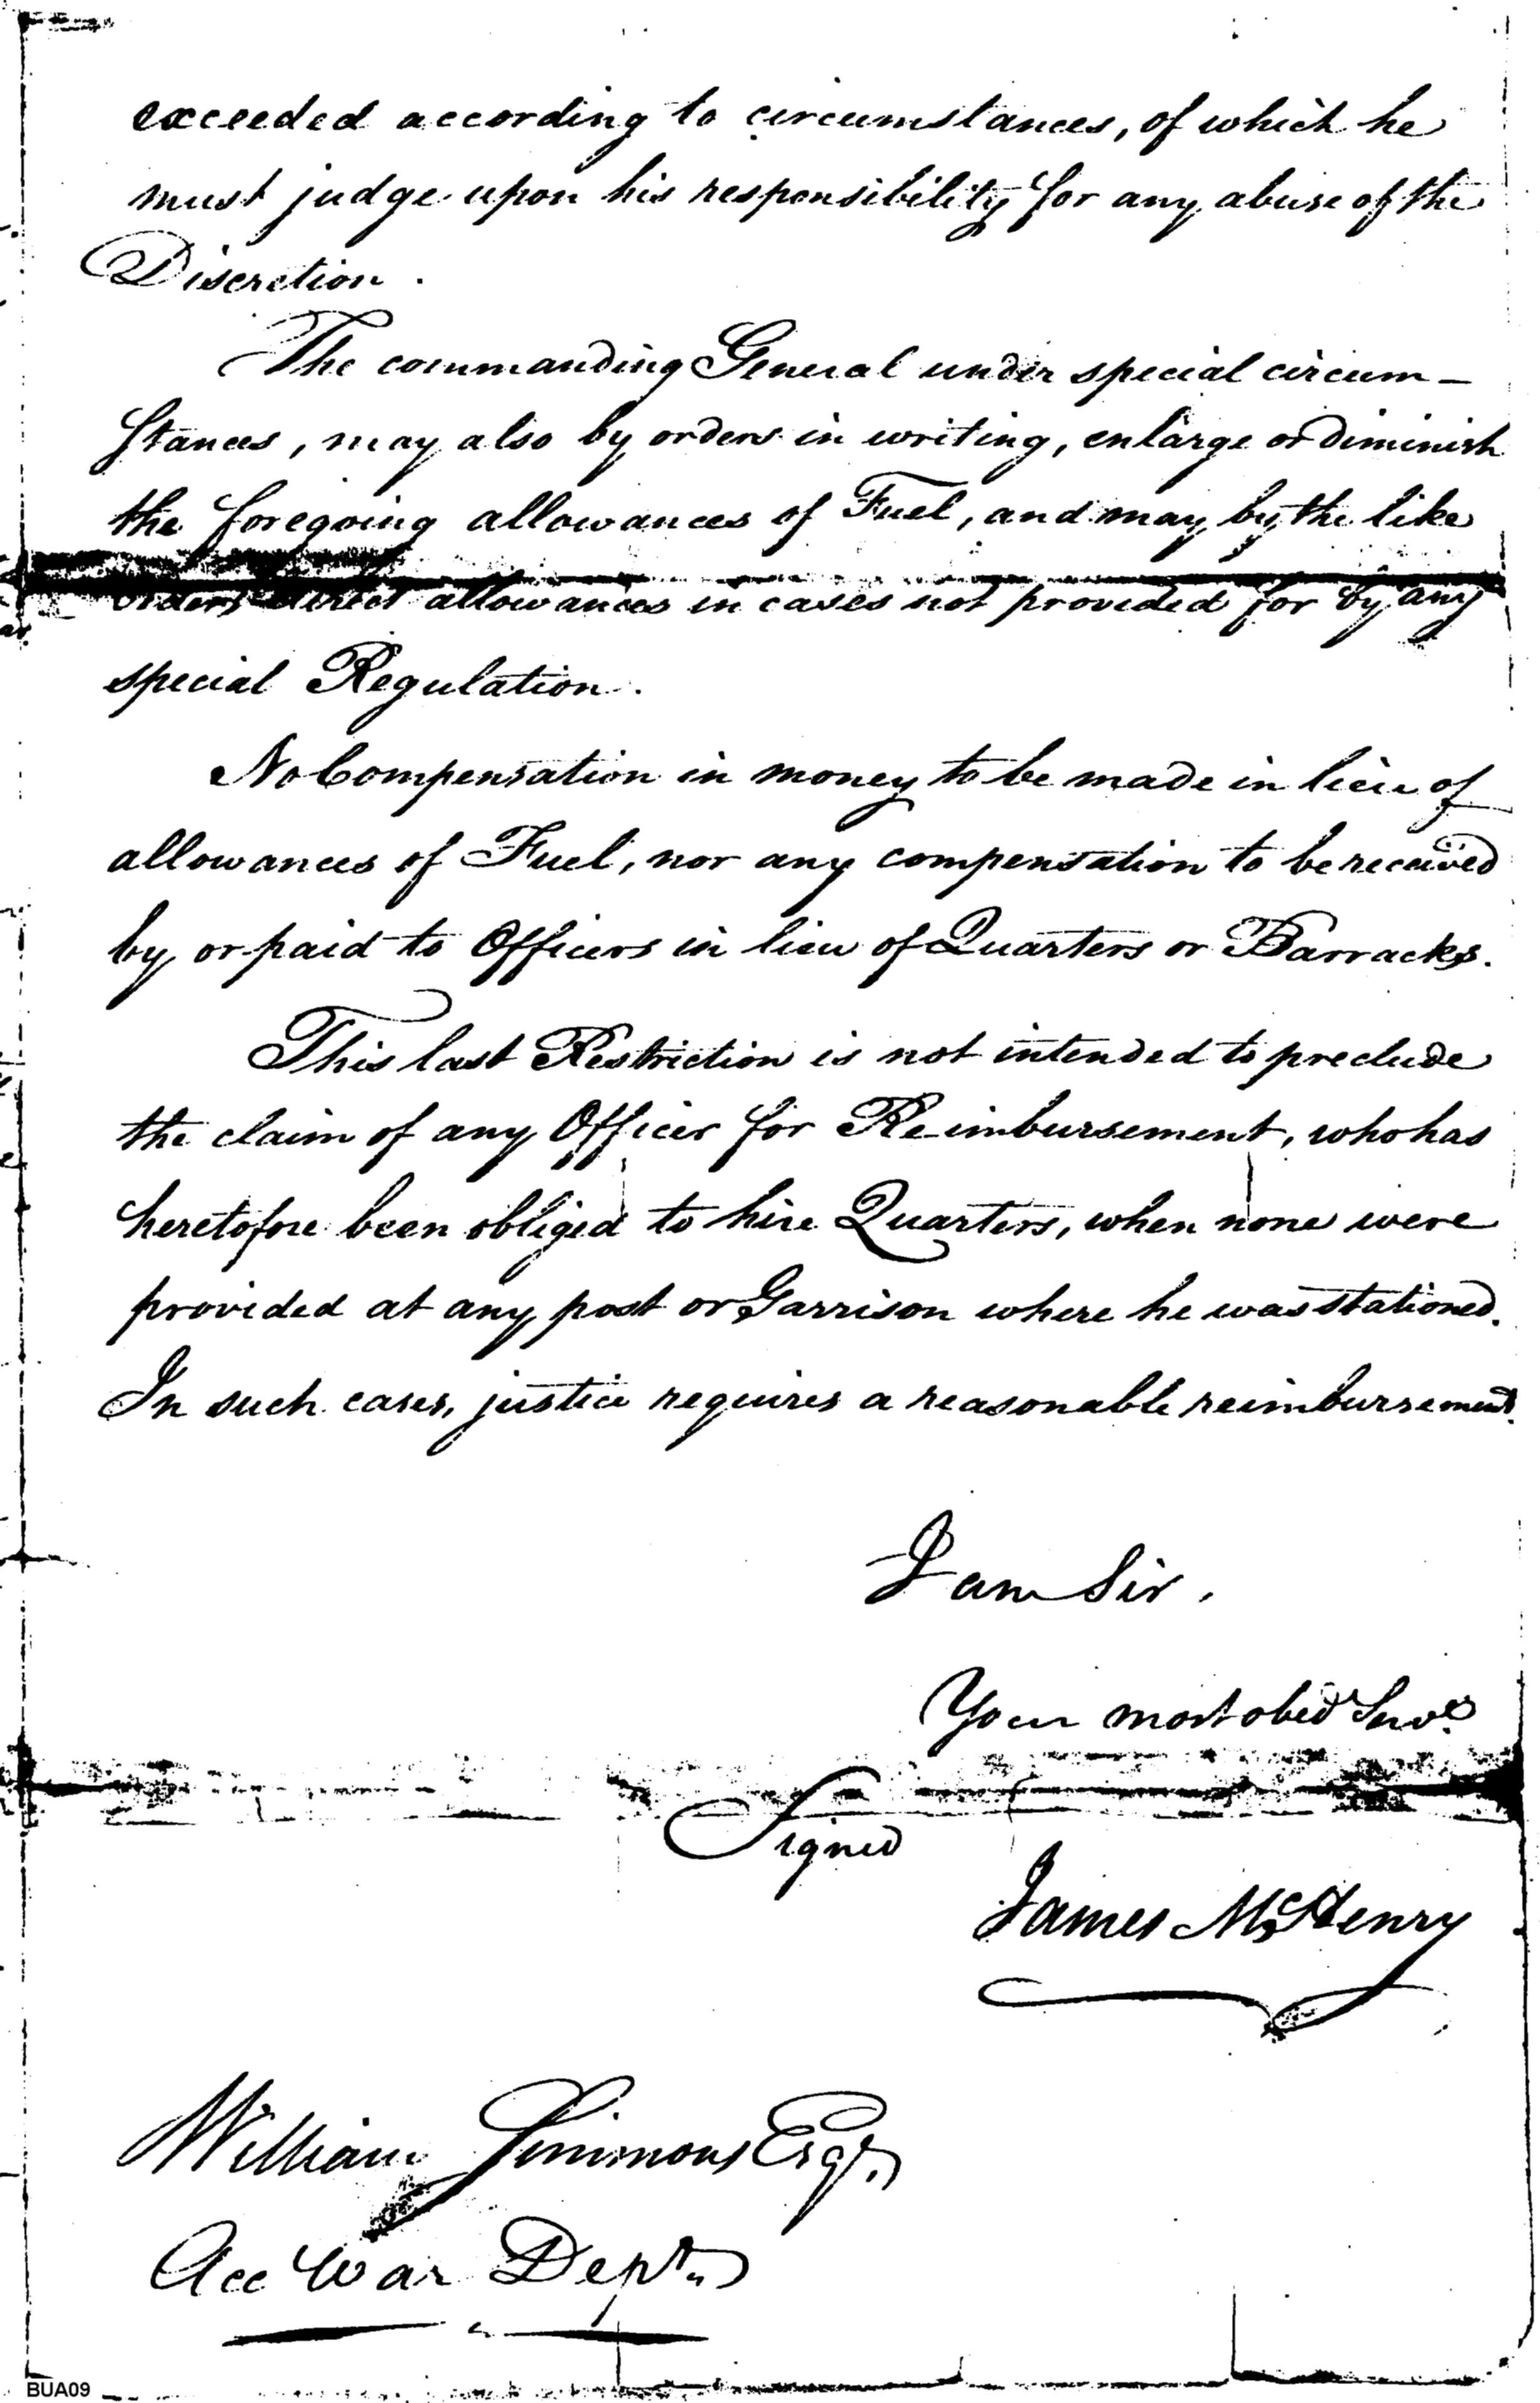 exceeded according to circumstances, of which he
must judge upon his responsibility for any abuse of the
Discretion.
The commanding General under special circum-
stances, may also by orders in writing, enlarge or diminish
the foregoing allowances of Fuel, and may by the like
orders direct allowances in cases not provided for by any
special Regulation.
No Compensation in money to be made in lieu of
allowances of Fuel, nor any compensation to be received
by or paid to Officers in lieu of Quarters or Barracks.
This last Restriction is not intended to preclude
the claim of any Officer for Reimbursement, who has
heretofore been obliged to hire Quarters, when none were
provided at any post or Garrison where he was stationed.
In such cases, justice requires a reasonable reimbursement.
I am Sir,
Your most obed Servt.
Signed
James McHenry
William Simmons Esqr.
Acc War Dept.
BUA09